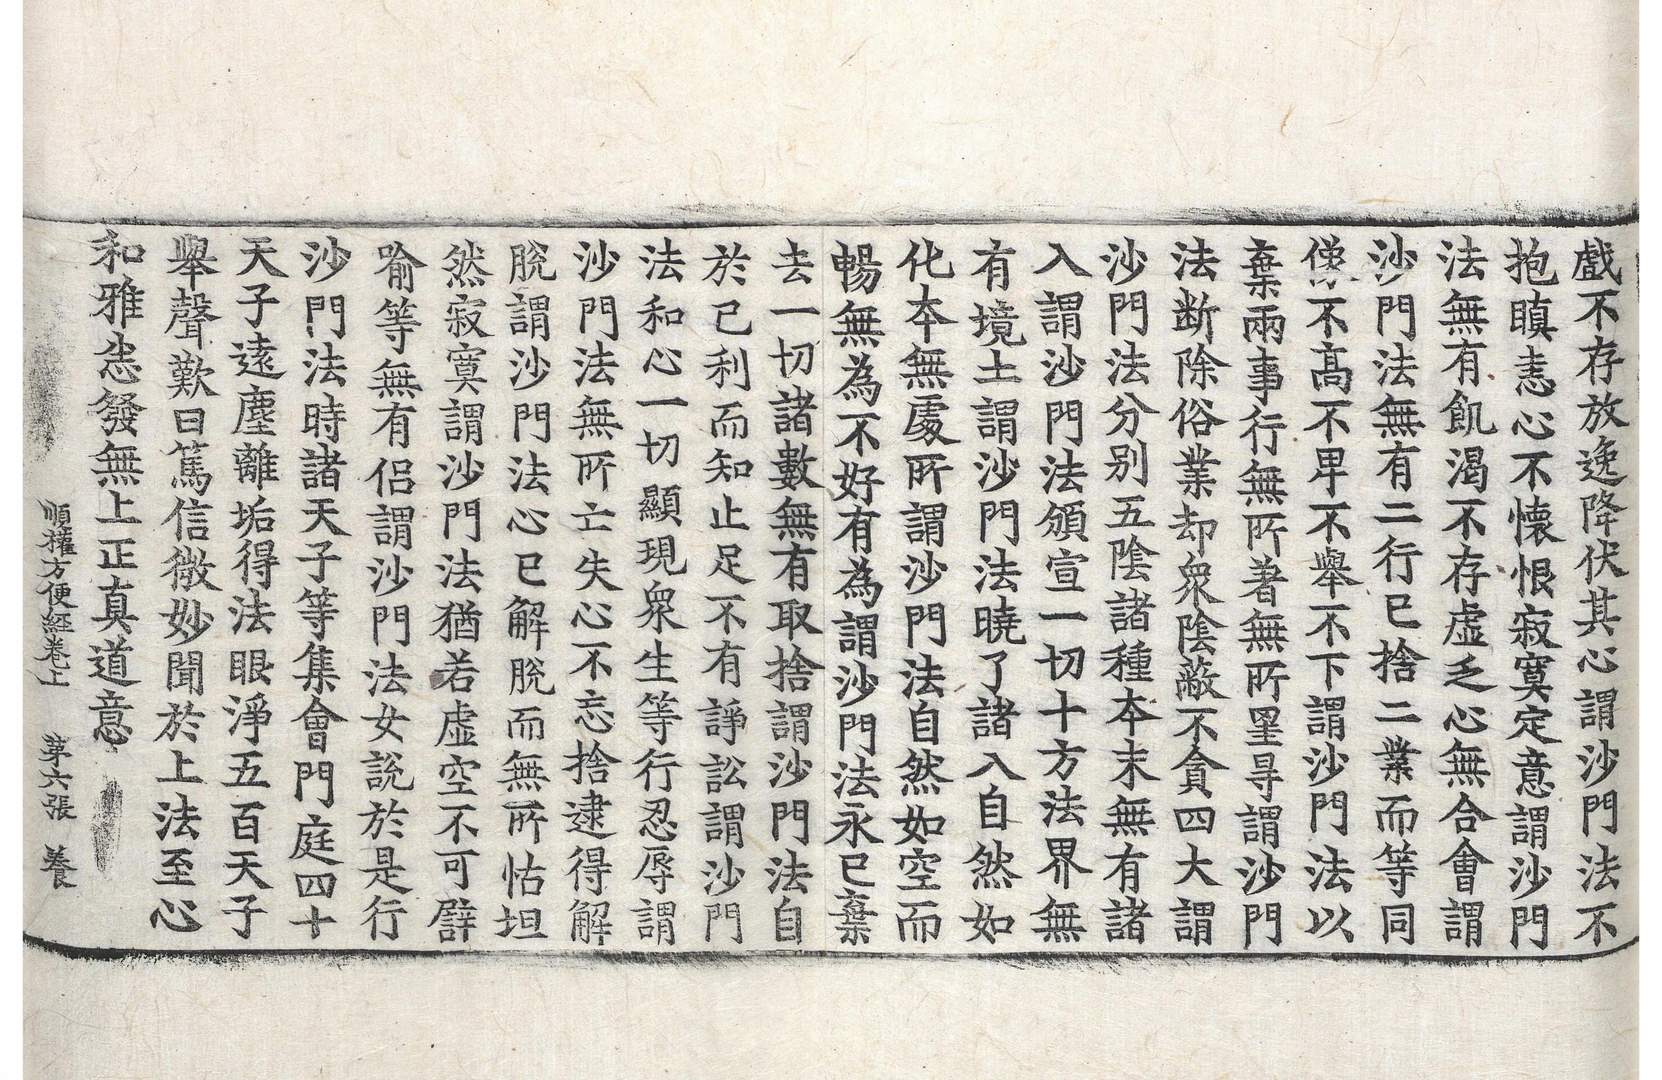 戲不存放逸降伏其心謂沙門法不
抱瞋恚心不懷恨寂寞定意謂沙門
法無有飢渴不存虛乏心無合會謂
沙門法無有二行已捨二業而等同
像不高不卑不舉不下謂沙門法以
棄兩事行無所著無所罣㝵謂沙門
法断除俗業却衆陰蔽不貪四大謂
沙門法分别五陰諸種本末無有諸
入謂沙門法頒宣一切十方法界無
有境土謂沙門法曉了諸入自然如
化本無處所謂沙門法自然如空而
暢無為不好有為謂沙門法永已棄
去一切諸數無有取捨謂沙門法自
於己利而知止足不有諍訟謂沙門
法和心一切顯現衆生等行忍辱謂
沙門法無所亡失心不忘捨逮得解
脫謂沙門法心已解脫而無所怙坦
然寂寞謂沙門法猶若虛空不可譬
喻等無有侶謂沙門法女說於是行
沙門法時諸天子等集會門庭四十
天子遠塵離垢得法眼淨五百天子
舉聲歎曰篤信微妙聞於上法至心
和雅悉發無上正真道意
順權方便經卷上 第六張 養